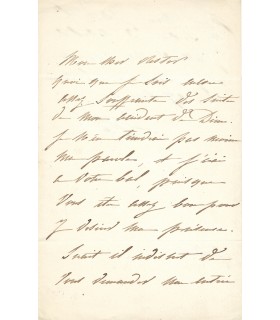 Mon cher Nestor
quoi que je sois encore
assez souffrante des suites
de mon accident de Dimanche
je n'en tiendrai pas moins
ma parole, et j'irai
a votre bal, puisque
vous etes assez bon pour
y désirer ma présence.
Serait il indiscret de
vous demander une entrée